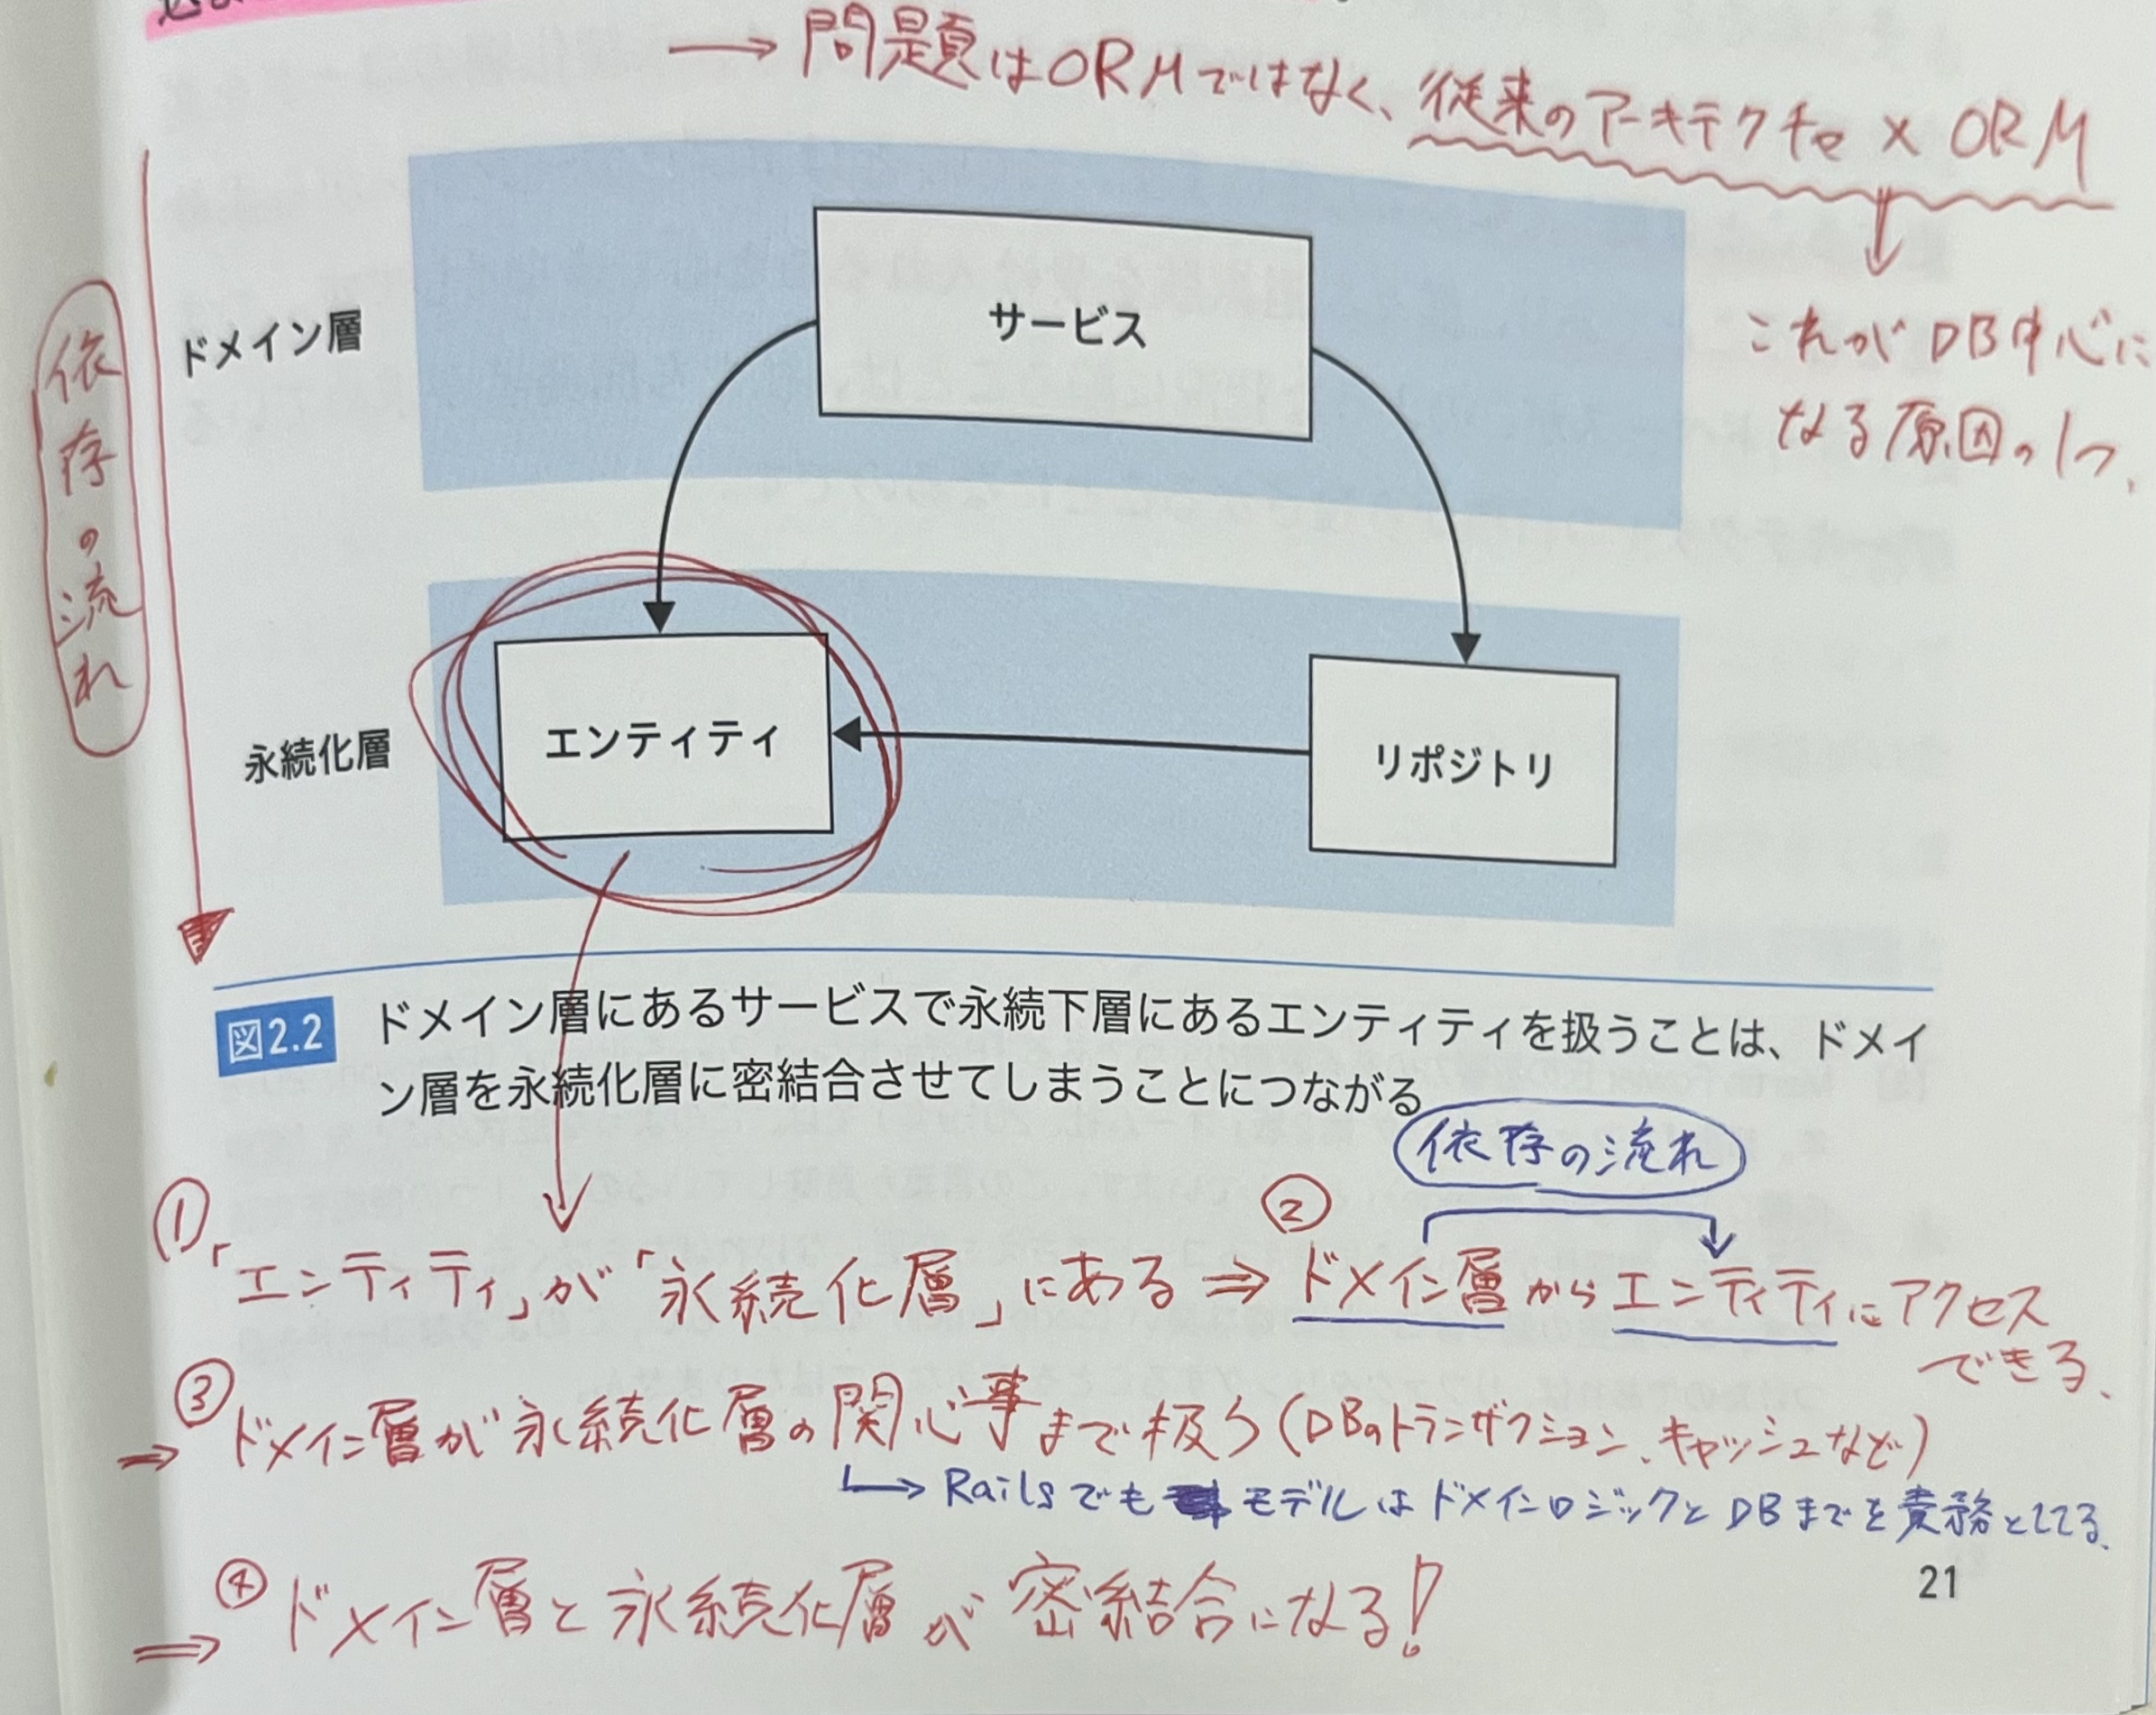 → 問題はORMではなく、従来のアーキテクチャ × ORM
これがDB中心に
なる原因の1つ、
依存の流れ
ドメイン層
サービス
永続化層
エンティティ
リポジトリ
図2.2 ドメイン層にあるサービスで永続下層にあるエンティティを扱うことは、ドメイ
ン層を永続化層に密結合させてしまうことにつながる
依存の流れ
①「エンティティ」が「永続化層」にある ⇒ ②ドメイン層からエンティティにアクセス
できる、
⇒ ③ドメイン層が永続化層の関心事まで扱う(DBのトランザクション、キャッシュなど)
→ Railsでも モデルはドメインロジックとDBまでを責務としてる、
⇒ ④ドメイン層と永続化層が密結合になる!
21